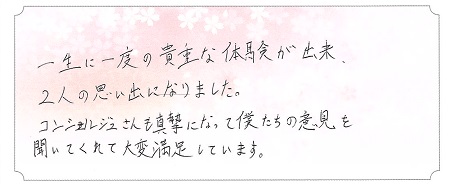 一生に一度の貴重な体験が出来、
2人の思い出になりました。
コンシェルジュさんも真摯になって僕たちの意見を
聞いてくれて大変満足しています。